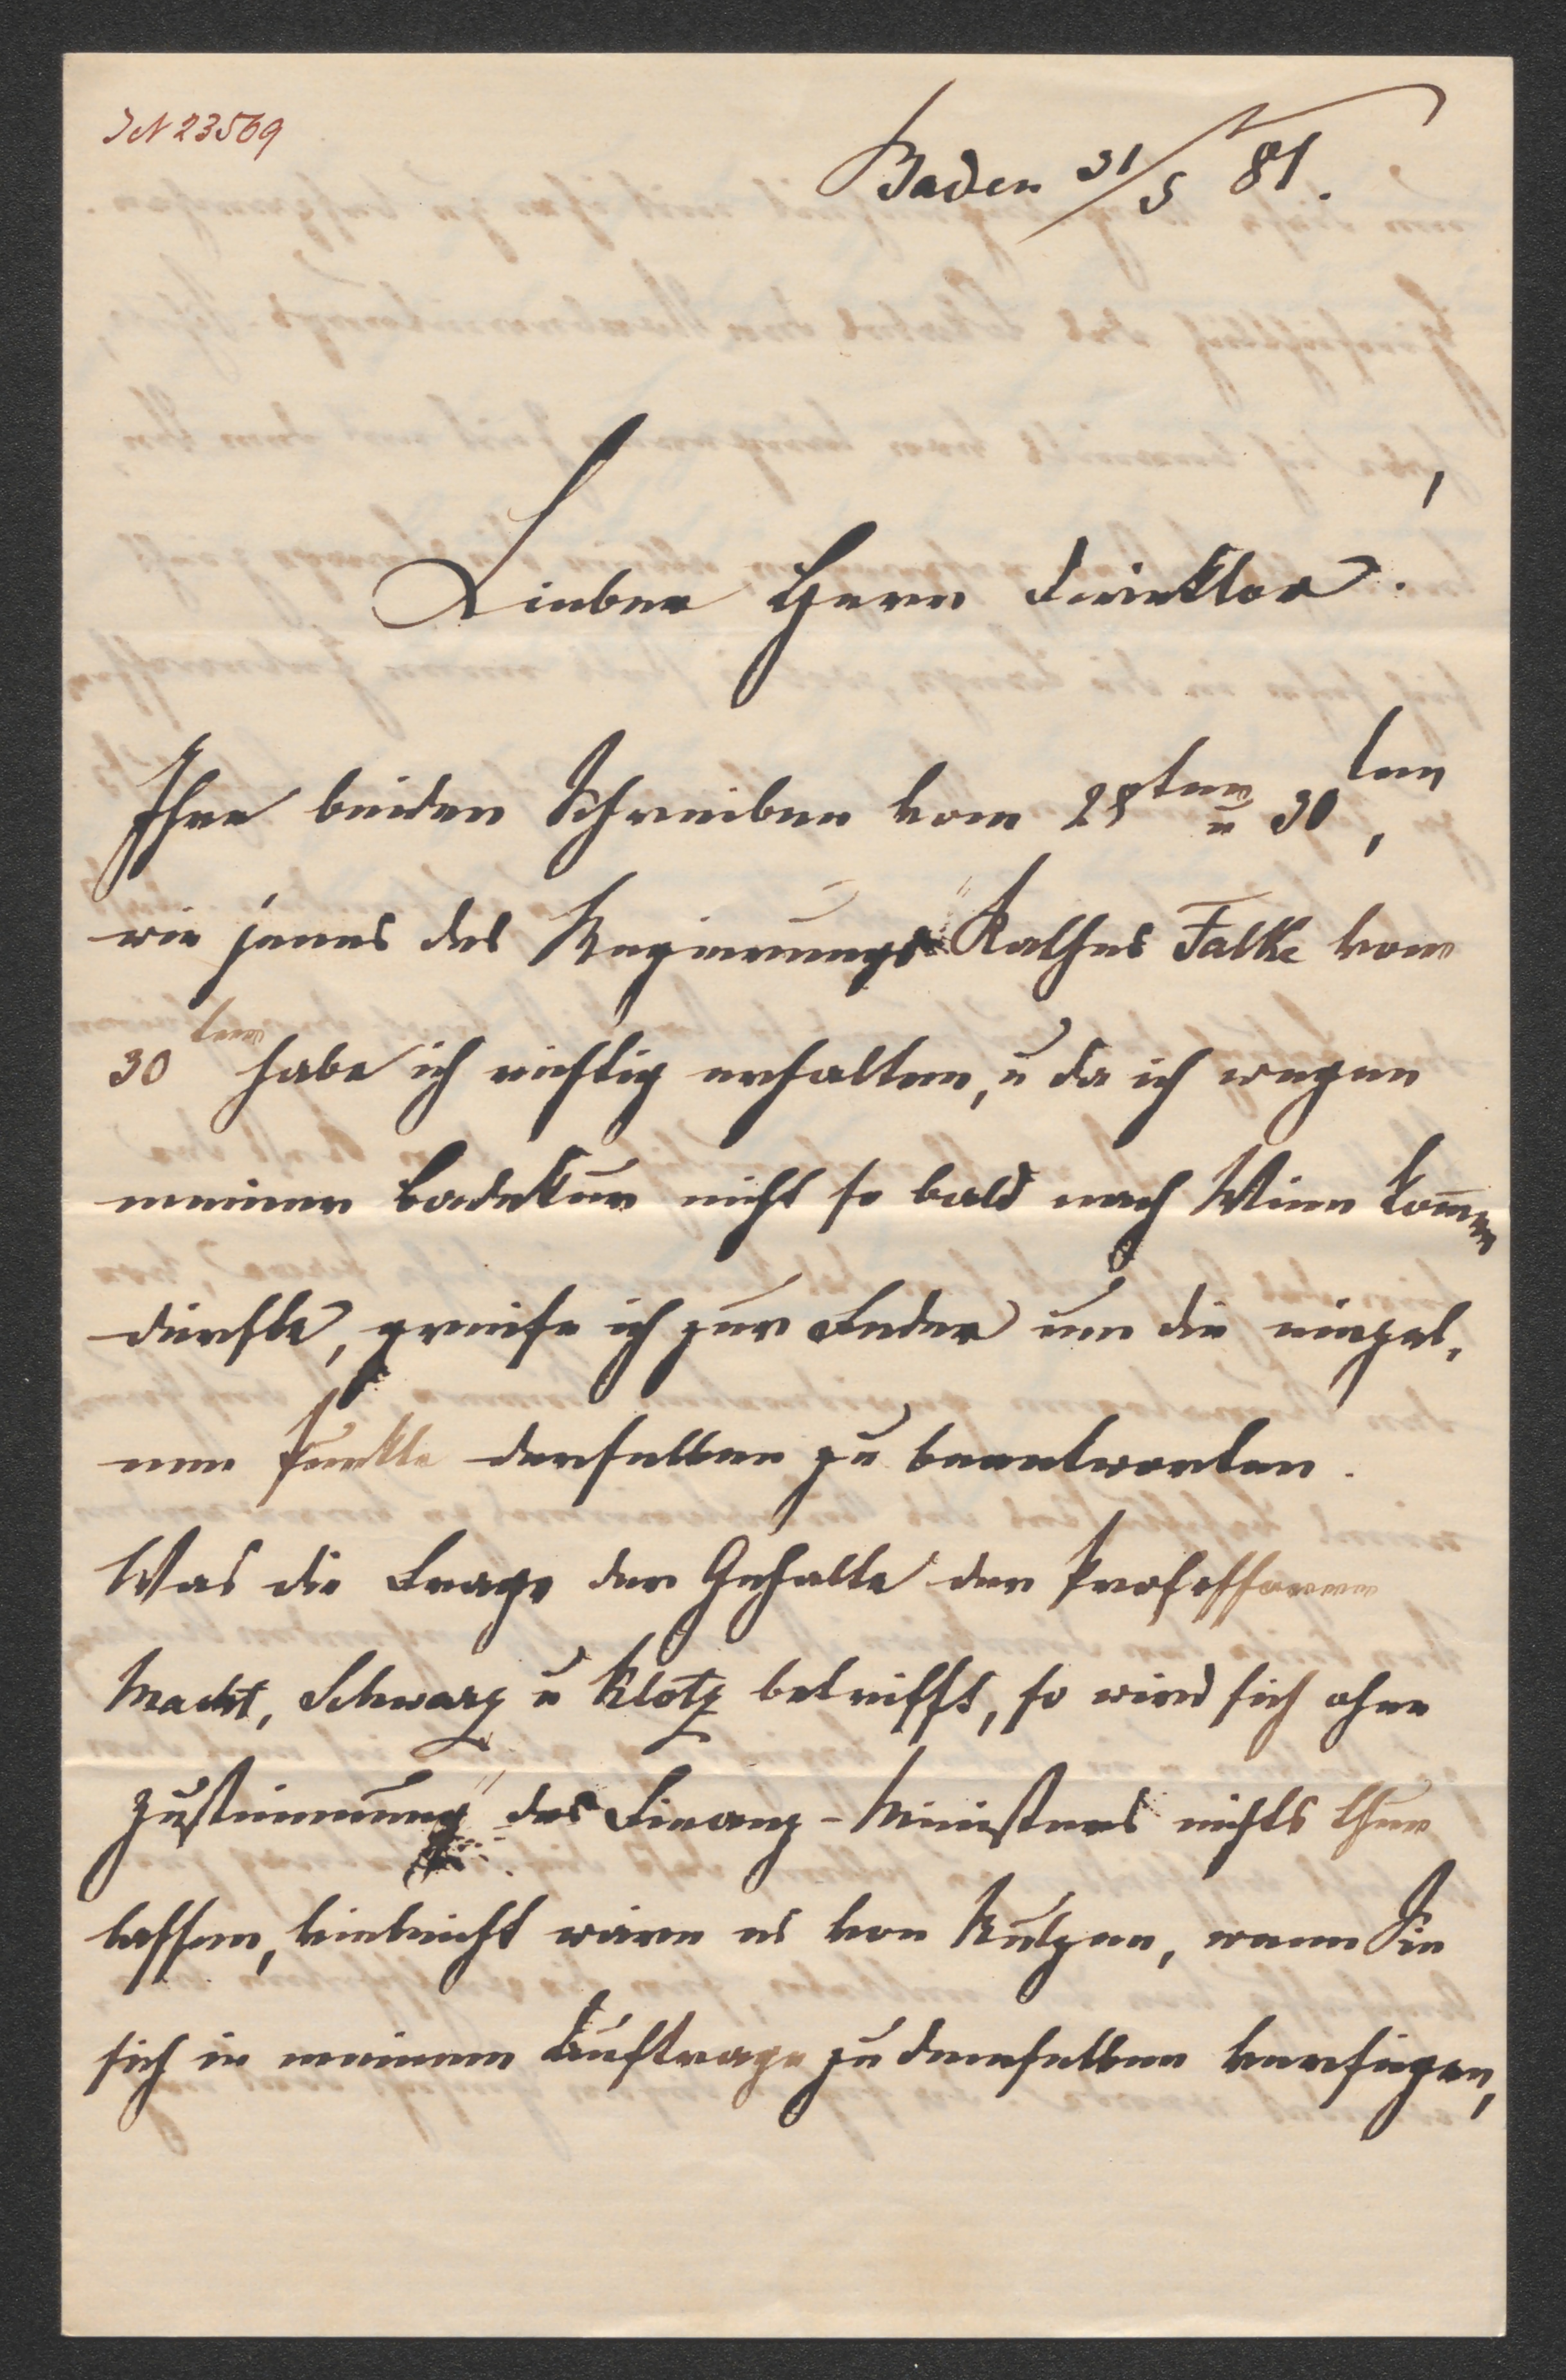 JN 23569
Baden 31/5 81.
Lieber Herr Direktor.
Ihre beiden Schreiben vom 28ten u 30ten,
wie jenes des Regierungs-Rathes Falke vom
30ten habe ich richtig erhalten, u da ich wegen
meiner Badekur nicht so bald nach Wien kom̅en
dürfte, greife ich zur Feder um die einzel-
nen Punkte derselben zu beantworten.
Was die Frage der Gehalte der Professoren
Macht, Schwarz u Klotz betrifft, so wird sich ohne
Zustimmung des Finanz-Ministers nichts thun
lassen, vielleicht wäre es von Nutzen, wenn Sie
sich in meinem Auftrage zu demselben verfügen,